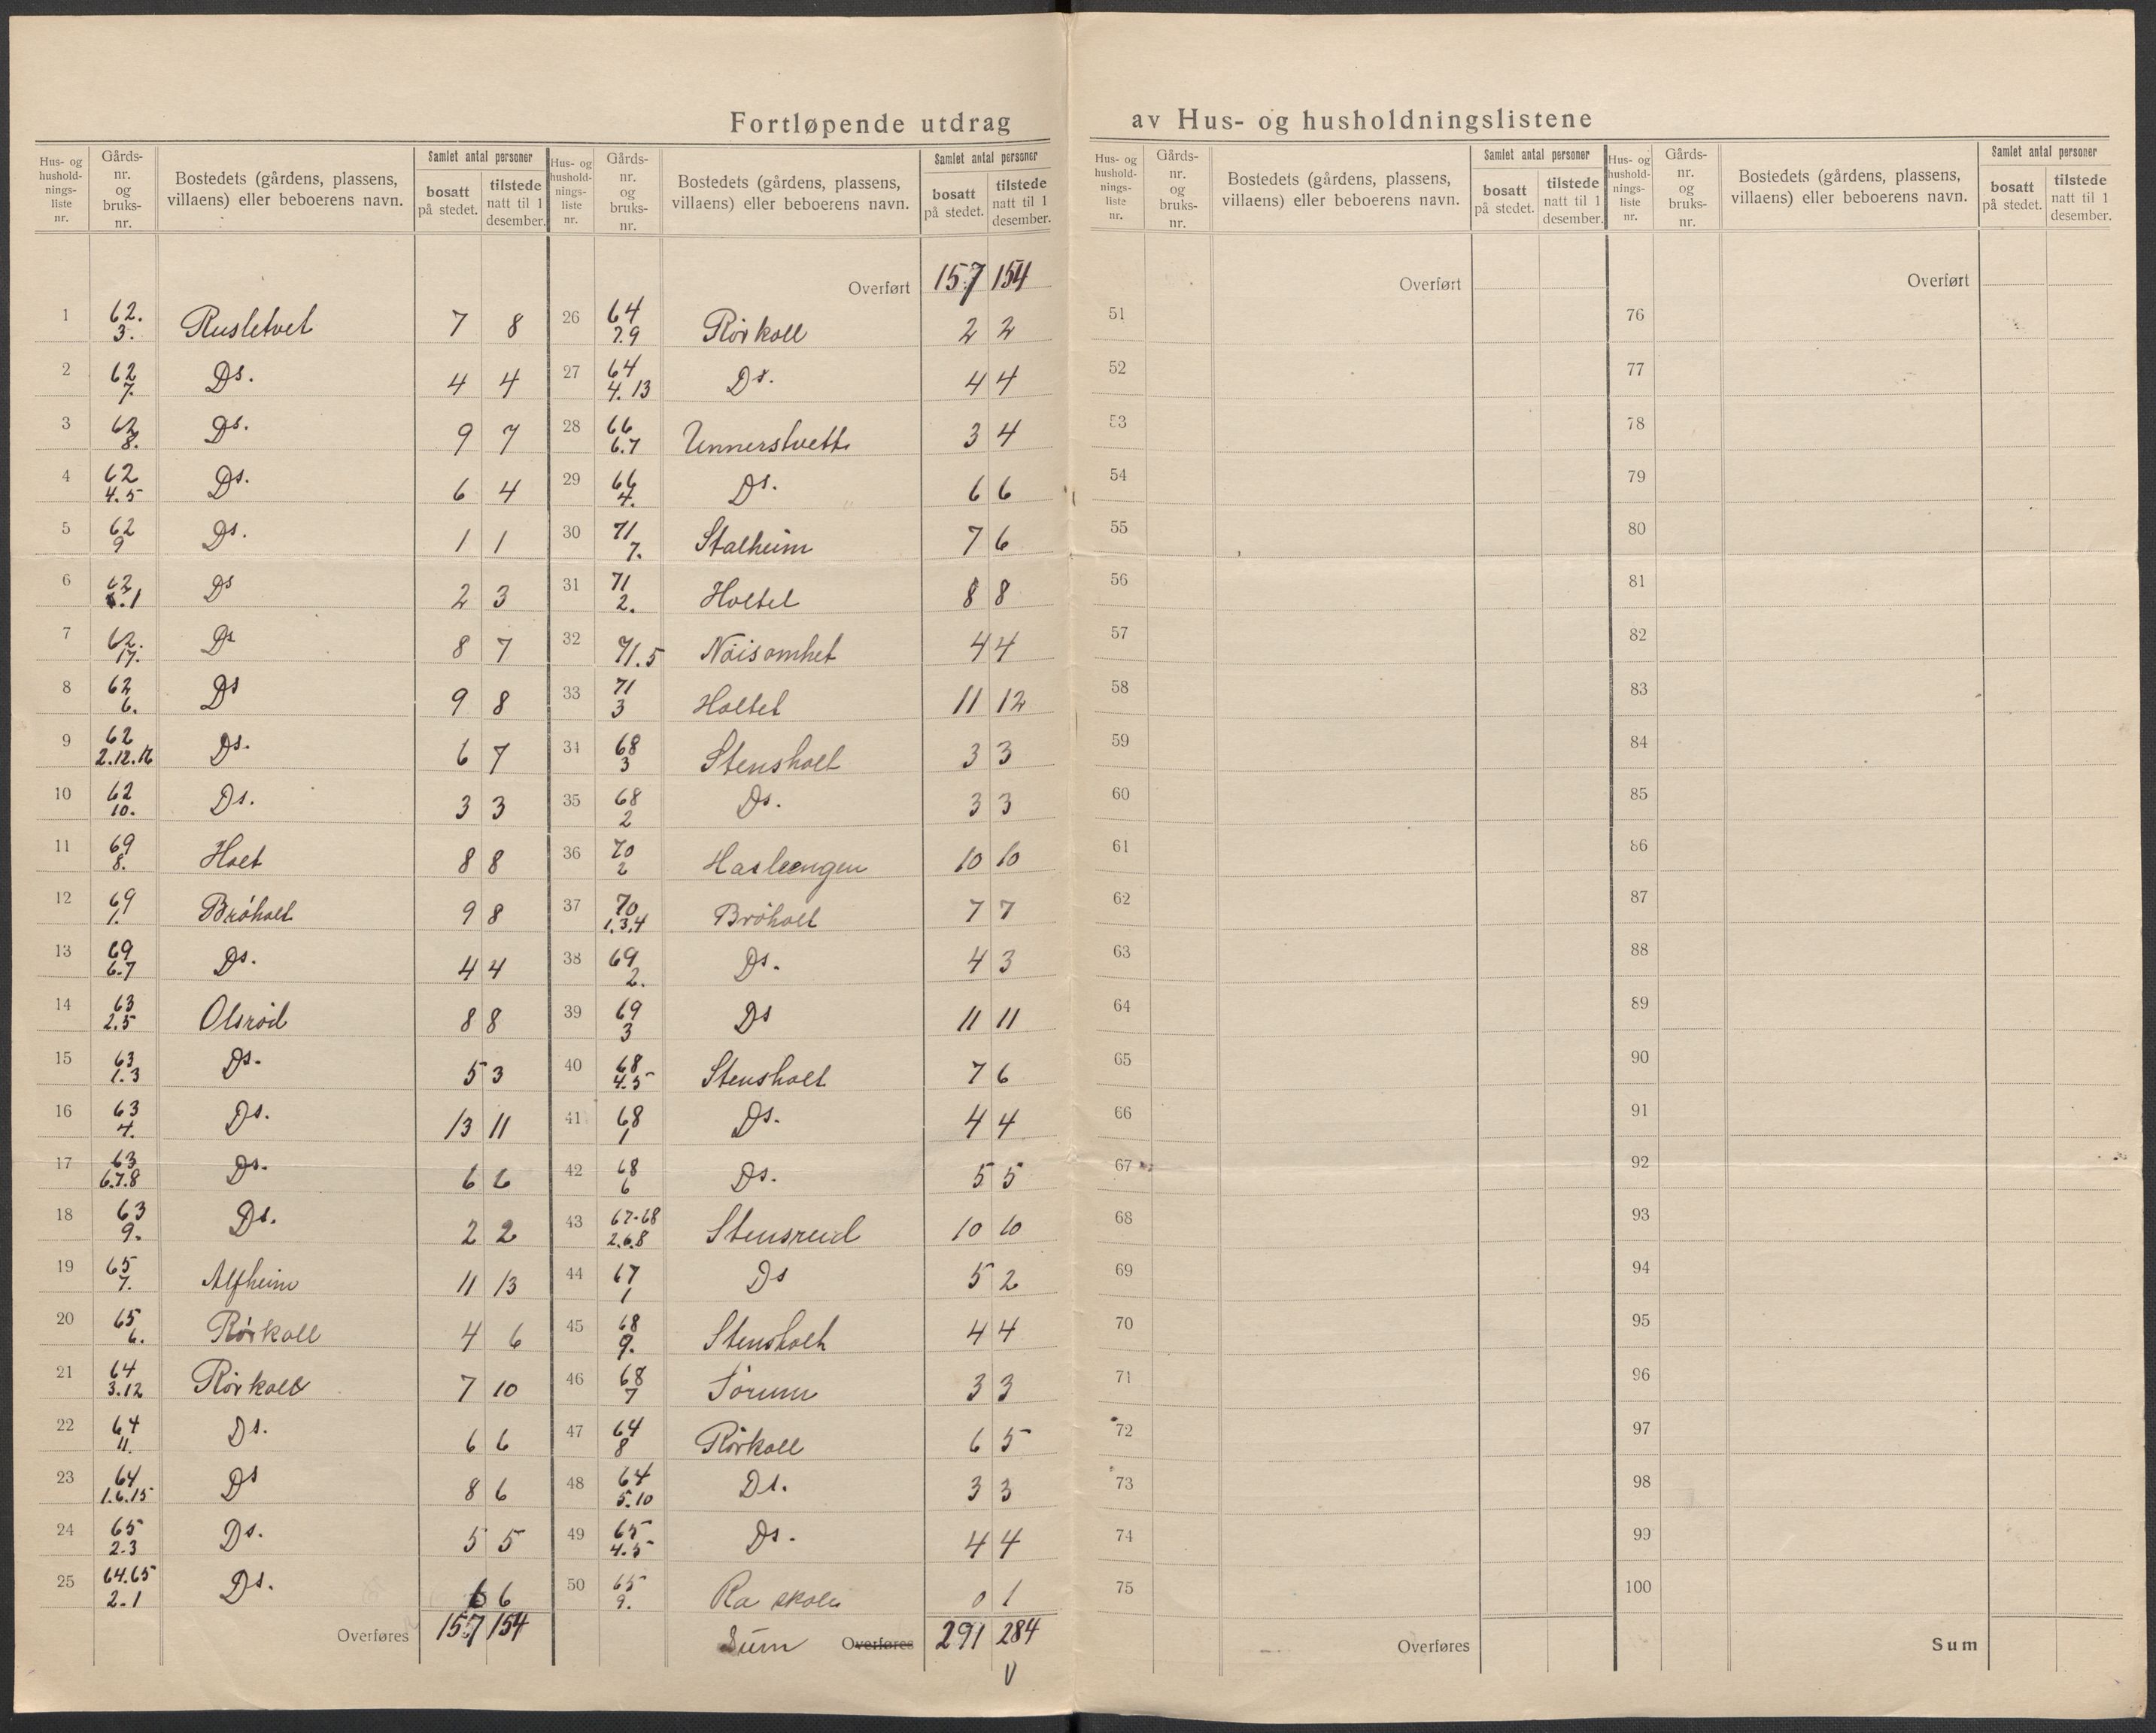 Fortløpende utdrag av Hus- og husholdningslistene
Hus- og hushold- nings- liste nr. | Gårds- nr. og bruks- nr. | Bostedets (gårdens, plassens, villaens) eller beboerens navn. | Samlet antal personer | bosatt på stedet. | tilstede natt til 1 desember.
1 62. 3. Rusletvet 7 8
2 62 7. Ds. 4 4
3 62 8. Ds. 9 7
4 62 4.5 Ds. 6 4
5 62 9 Ds. 1 1
6 62 .1 Ds 2 3
7 62. 17. Ds 8 7
8 62 6. Ds 9 8
9 62 2.12.16 Ds. 6 7
10 62 10. Ds. 3 3
11 69 8. Holt 8 8
12 69 1. Bröholt 9 8
13 69 6.7 Ds. 4 4
14 63 2.5 Olsröd 8 8
15 63 1.3 Ds. 5 3
16 63 4. Ds. 13 11
17 63 6.7.8 Ds. 6 6
18 63 9. Ds. 2 2
19 65 7. Alfheim 11 13
20 65 6. Rörkoll 4 6
21 64 3.12 Rörkoll 7 10
22 64 11. Ds. 6 6
23 64 1.6.15 Ds 8 6
24 65 2.3 Ds. 5 5
25 64.65 2.1 Ds. 6 6
Overføres 157 154
Hus- og hushold- nings- liste nr. | Gårds- nr. og bruks- nr. | Bostedets (gårdens, plassens, villaens) eller beboerens navn. | Samlet antal personer | bosatt på stedet. | tilstede natt til 1 desember.
Overført 157 154
26 64 7.9 Rörkoll 2 2
27 64 4.13 Ds. 4 4
28 66 6.7 Unnerstvett 3 4
29 66 4. Ds. 6 6
30 71 7. Stalheim 7 6
31 71 2. Holtet 8 8
32 71.5 Nöisomhet 4 4
33 71 3 Holtet 11 12
34 68 3 Stensholt 3 3
35 68 2 Ds. 3 3
36 70 2 Hasleengen 10 10
37 70 1.3.4 Bröholt 7 7
38 69 2. Ds. 4 3
39 69 3 Ds 11 11
40 68 4.5 Stensholt 7 6
41 68 1 Ds. 4 4
42 68 6 Ds. 5 5
43 67-68 2.6.8 Stensreid 10 10
44 67 1 Ds 5 2
45 68 9. Stensholt 4 4
46 68 7 Sörum 3 3
47 64 8 Rörkoll 6 5
48 64 5.10 Ds. 3 3
49 65 4.5 Ds. 4 4
50 65 9. Ra skole 0 1
Sum Overføres 291 284
V
Hus- og hushold- nings- liste nr. | Gårds- nr. og bruks- nr. | Bostedets (gårdens, plassens, villaens) eller beboerens navn. | Samlet antal personer | bosatt på stedet. | tilstede natt til 1 desember.
Overført
51
52
53
54
55
56
57
58
59
60
61
62
63
64
65
66
67
68
69
70
71
72
73
74
75
Overføres
Hus- og hushold- nings- liste nr. | Gårds- nr. og bruks- nr. | Bostedets (gårdens, plassens, villaens) eller beboerens navn. | Samlet antal personer | bosatt på stedet. | tilstede natt til 1 desember.
Overført
76
77
78
79
80
81
82
83
84
85
86
87
88
89
90
91
92
93
94
95
96
97
98
99
100
Sum